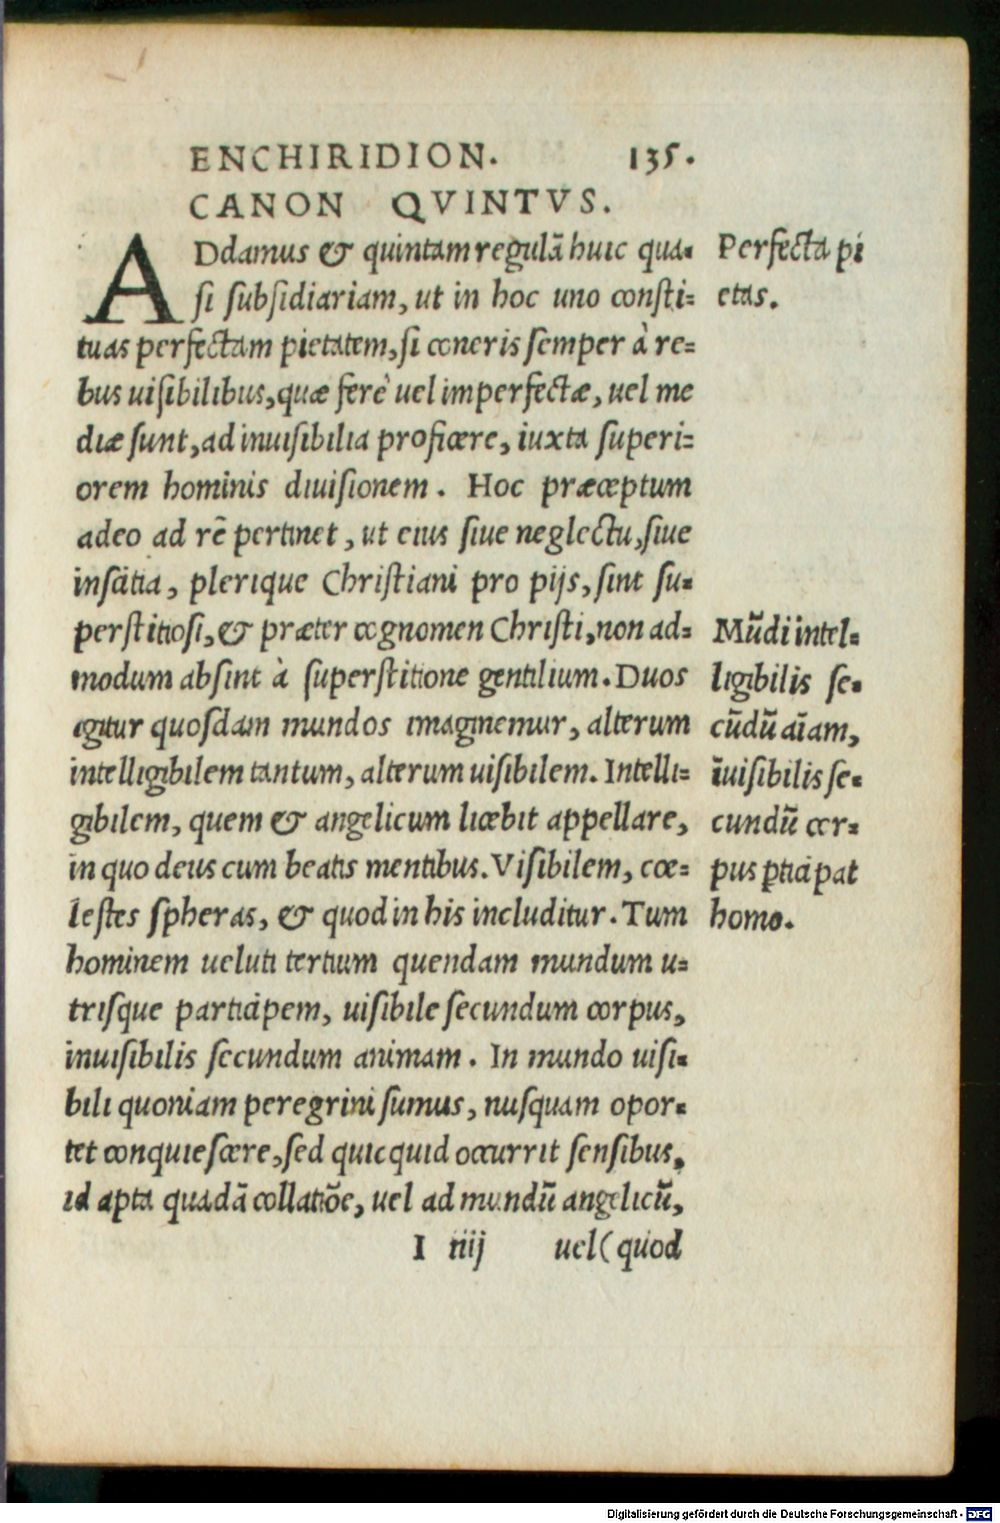 ENCHIRIDION. 135.
CANON QVINTVS.
ADdamus & quintam regulā huic qua-
si subsidiariam, ut in hoc uno consti-
tuas perfectam pietatem, si coneris semper à re-
bus uisibilibus, quæ ferè uel imperfectæ, uel me
diæ sunt, ad inuisibilia proficere, iuxta superi-
orem hominis diuisionem. Hoc præceptum
adeo ad rē pertinet, ut eius siue neglectu, siue
inscātia, plerique Christiani pro pijs, sint su-
perstitiosi, & præter cognomen Christi, non ad-
modum absint à superstitione gentilium. Duos
igitur quosdam mundos imaginemur, alterum
intelligibilem tantum, alterum uisibilem. Intelli-
gibilem, quem & angelicum licebit appellare,
in quo deus cum beatis mentibus. Visibilem, cœ-
lestes spheras, & quod in his includitur. Tum
hominem ueluti tertium quendam mundum u-
trisque participem, uisibile secundum corpus,
inuisibilis secundum animam. In mundo uisi-
bili quoniam peregrini sumus, nusquam opor-
tet conquiescere, sed quicquid occurrit sensibus,
id apta quadā collatiōe, uel ad mundū angelicū,
I iiij uel (quod
Perfecta pi
etas.
Mūdi intel-
ligibilis se-
cūdū aīam,
īuisibilis se-
cundū cor-
pus ꝑticipat
homo.
Digitalisierung gefördert durch die Deutsche Forschungsgemeinschaft - DFG